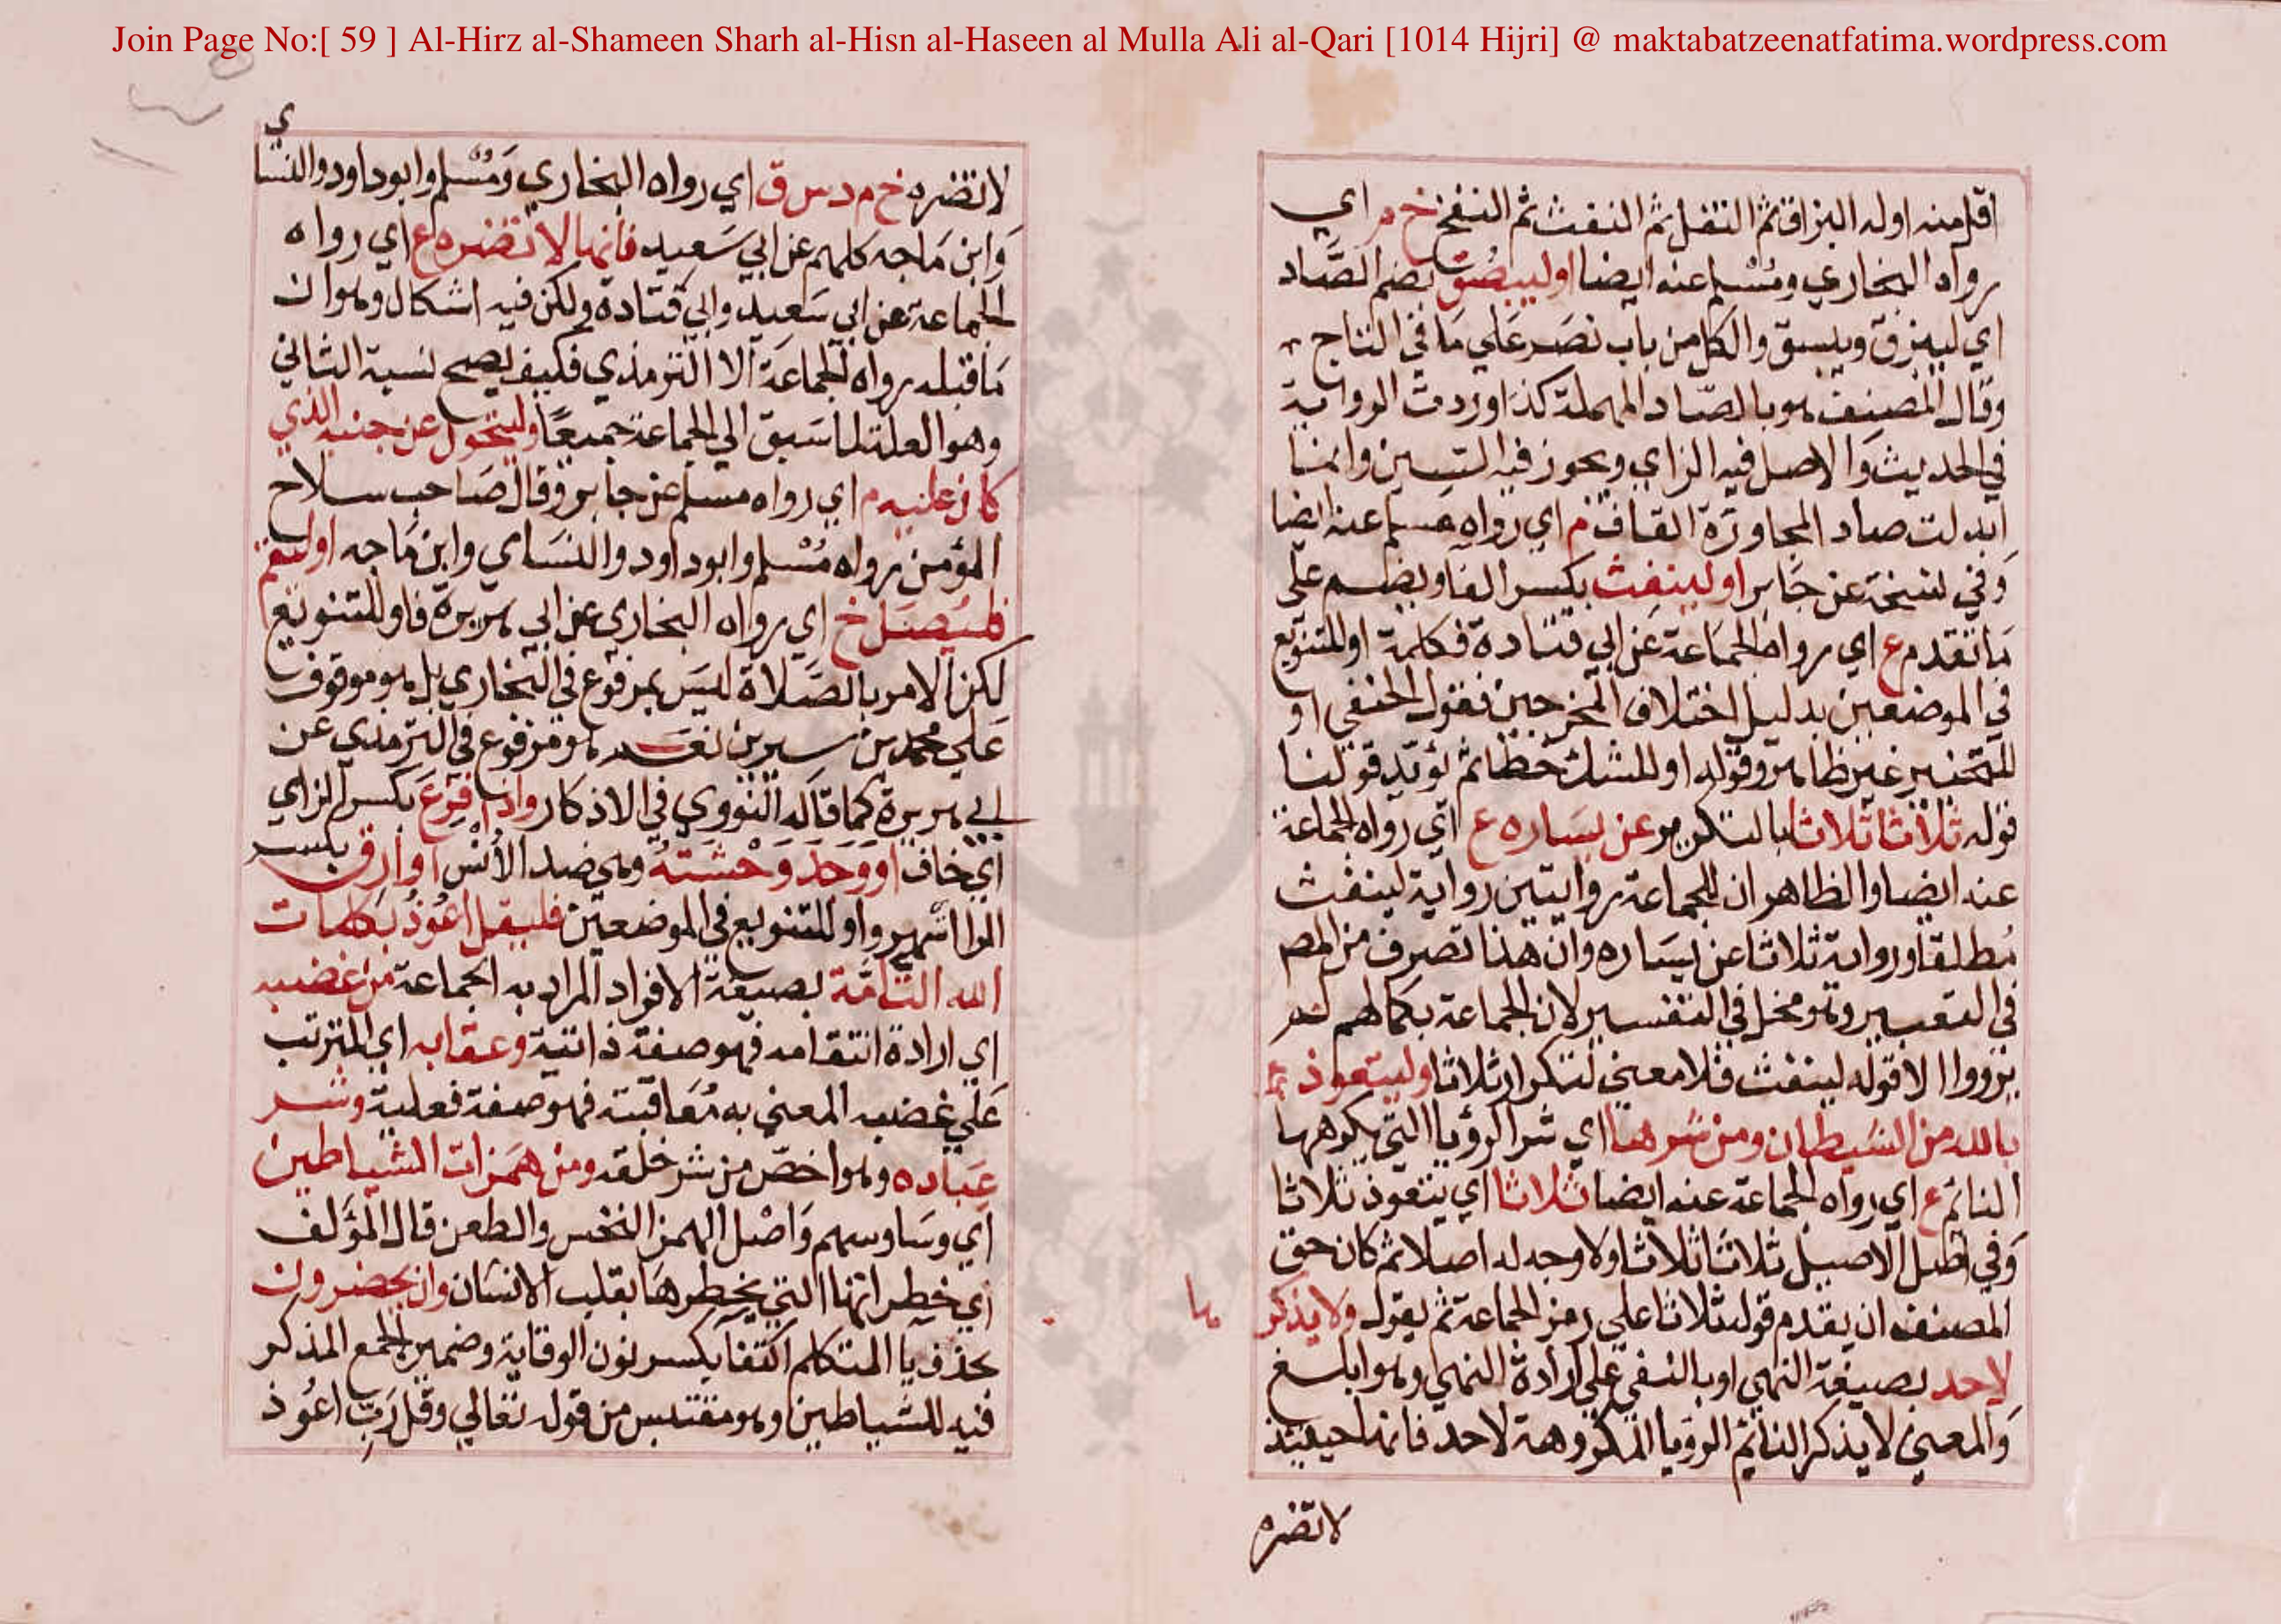 Join Page No:[ 59 ] Al-Hirz al-Shameen Sharh al-Hisn al-Haseen al Mulla Ali al-Qari [1014 Hijri] @ maktabatzeenatfatima.wordpress.com
اقل منه اوله البزاق ثم التفل ثم النفث ثم النفخ خ م اي
رواه البخاري ومسلم عنه ايضا او ليبصق بضم الصاد
اي ليبزق ويبسق والكل من باب نصر علي ما في التاج
وقال المصنف هو بالصاد المهملة كذا وردت الرواية
في الحديث والاصل فيه الزاي ويجوز فيه السين وانما
ابدلت صاد المجاورة القاف م اي رواه مسلم عنه ايضا
وفي نسخة عن جابر او لينفث بكسر الفا وبضم علي
ما تقدم ع اي رواه الجماعة عن ابي قتادة فكلمة او للتنويع
في الموضعين بدليل اختلاف المخرجين فقول الحنفي او
للتخيير غير ظاهر وقوله او للشك خطا ثم يؤيد قولنا
قوله ثلاثا ثلاثا بالتكرير عن يساره ع اي رواه الجماعة
عنه ايضا والظاهر ان للجماعة روايتين رواية لينفث
مطلقا ورواية ثلاثا عن يساره وان هذا تصرف من المص
في التعبير وهو مخل في التفسير لان الجماعة بكمالهم لم
يرووا الا قوله لينفث فلا معني لتكرار ثلاثا وليتعوذ
بالله من الشيطان ومن شرها اي شر الرؤيا التي يكرهها
النائم ع اي رواه الجماعة عنه ايضا ثلاثا اي يتعوذ ثلاثا
وفي اصل الاصيل ثلاثا ثلاثا ولا وجه له اصلا ثم كان حق
المصنف ان يقدم قوله ثلاثا علي رمز الجماعة ثم يقول ولا يذكر
ها
لاحد بصيغة النهي او بالنفي علي ارادة النهي وهو ابلغ
والمعني لا يذكر النائم الرؤيا المكروهة لاحد فانها حينئذ
لا تضره
لا تضره خ م د س ق اي رواه البخاري ومسلم وابو داود والنسا
ي
وابن ماجه كلهم عن ابي سعيد فانها لا تضره ع اي رواه
الجماعة عن ابي سعيد وابي قتادة ولكن فيه اشكال وهو ان
ما قبله رواه الجماعة الا الترمذي فكيف يصح نسبة الثاني
وهو العلة لما سبق الي الجماعة جميعا وليتحول عن جنبه الذي
كان عليه م اي رواه مسلم عن جابر وقال صاحب سلاح
المؤمن رواه مسلم وابو داود والنسائي وابن ماجه او ليقم
فليصل خ اي رواه البخاري عن ابي هريرة فاو للتنويع
لكن الامر بالصلاة ليس بمرفوع في البخاري بل هو موقوف
علي محمد بن سيرين نعم هو مرفوع في الترمذي عن
ابي هريرة كما قاله النووي في الاذكار واذا فزع بكسر الزاي
اي خاف او وجد وحشته وهي ضد الانس او ارق بكسر
الرا اسهر واو للتنويع في الموضعين فليقل اعوذ بكلمات
الله التامة بصيغة الافراد المراد به الجماعة من غضبه
اي ارادة انتقامه فهو صفة ذاتية وعقابه اي المترتب
علي غضبه المعني به معاقبته فهو صفة فعلية وشر
عباده وهو اخص من شر خلقه ومن همزات الشياطين
اي وساوسهم واصل الهمز النخس والطعن قال المؤلف
اي خطراتها التي يخطرها بقلب الانسان وان يحضرون
بحذف يا المتكلم اكتفا بكسر نون الوقاية وضمير الجمع المذكر
فيه للشياطين وهو مقتبس من قوله تعالي وقل رب اعوذ